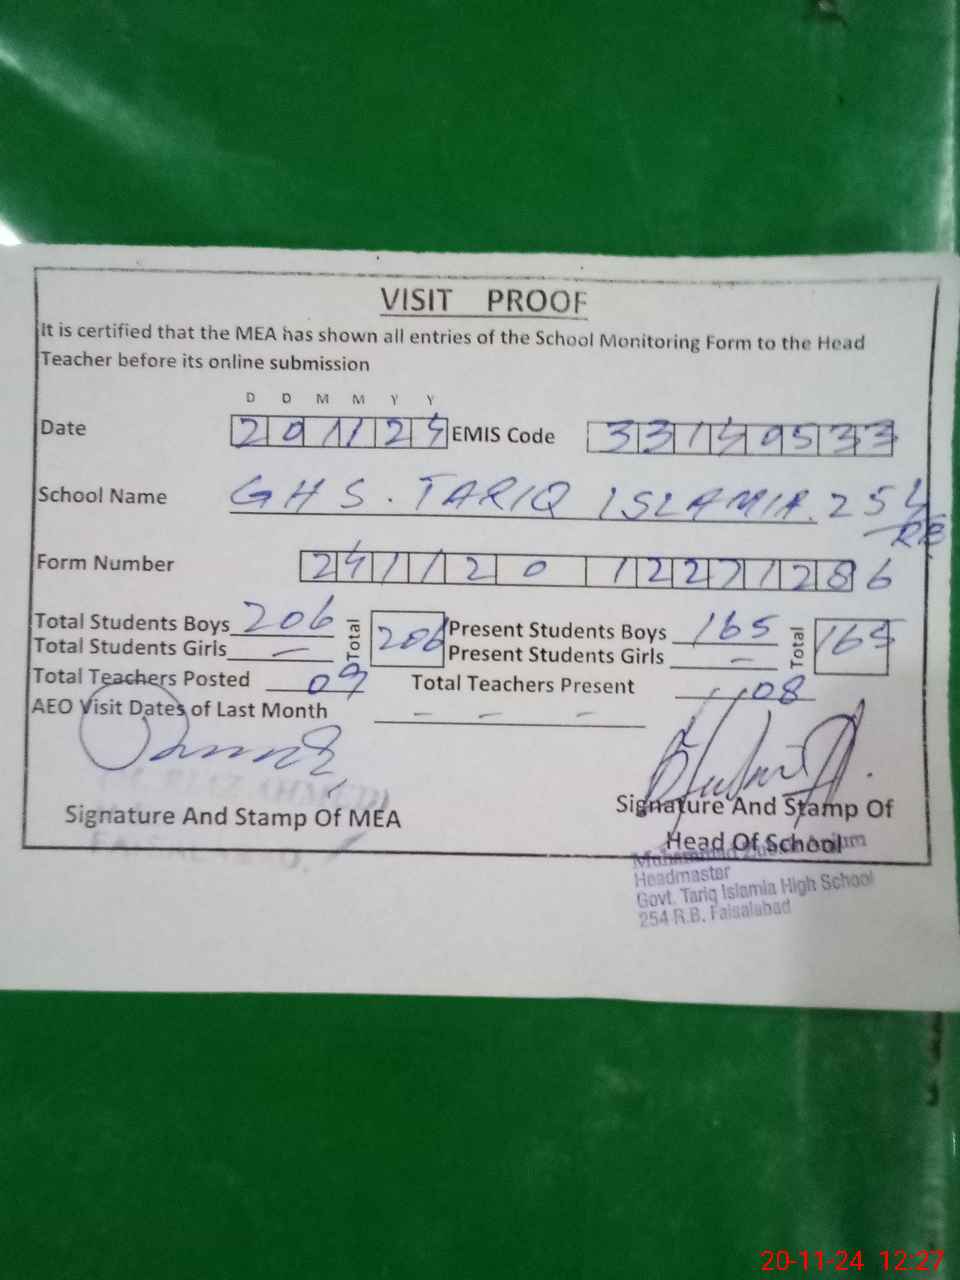 VISIT PROOF
It is certified that the MEA has shown all entries of the School Monitoring Form to the Head
Teacher before its online submission
D D M M Y Y
Date 201124 EMIS Code 33140533
School Name GHS. TARIQ ISLAMIA. 254
RB
Form Number 241120 1227128 6
Total Students Boys 206 Total 206 Present Students Boys 165 Total 165
Total Students Girls — Present Students Girls —
Total Teachers Posted 09 Total Teachers Present 08
AEO Visit Dates of Last Month — — —
Signature And Stamp Of MEA
Signature And Stamp Of
Head Of School
Muhammad
Headmaster
Govt. Tariq Islamia High School
254 R.B. Faisalabad
20-11-24 12:27